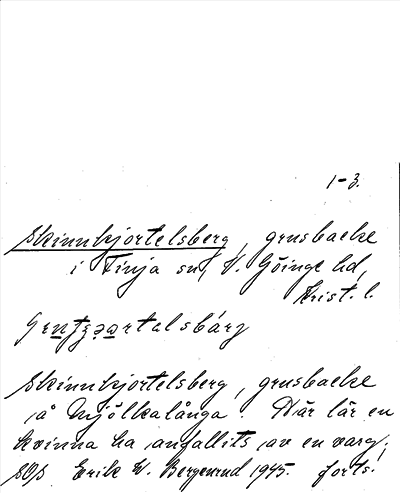 1-3.
Skinnkjortelsberg, grusbacke
i Finja sn, V. Göinge hd,
Krist. l.
Skinnkjortelsberg, grusbacke
å Mjölkalånga. Där lär en
kvinna ha anfallits av en varg.
SOs Erik W. Bergenrud 1945. forts.